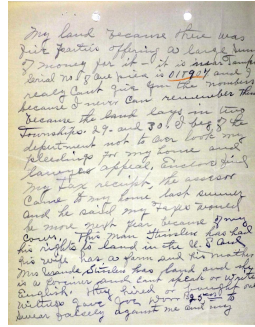 My land because there was
five parties offering a large sum
of money for it - it is near Tampa
Serial No. of one piece is 018907 and I
realy Cant give you the numbers
because I never Can remember them
because the land lays in two
Townships. 29. and 30. I beg of the
department not to over look my
pleadings for my home and
lawyers appeal, Enclose find
my tax receipt, the assessor
Came to my home last summer
and he said my taxes would
be more next year because of my
This man has had
his rights to land in the U.S. and
his wife has a farm and his mother
Mrs has land and she
is a foreigner and Cant speak or write
English. they hired or bought out
Witness gave for to
swear falsely against me and my